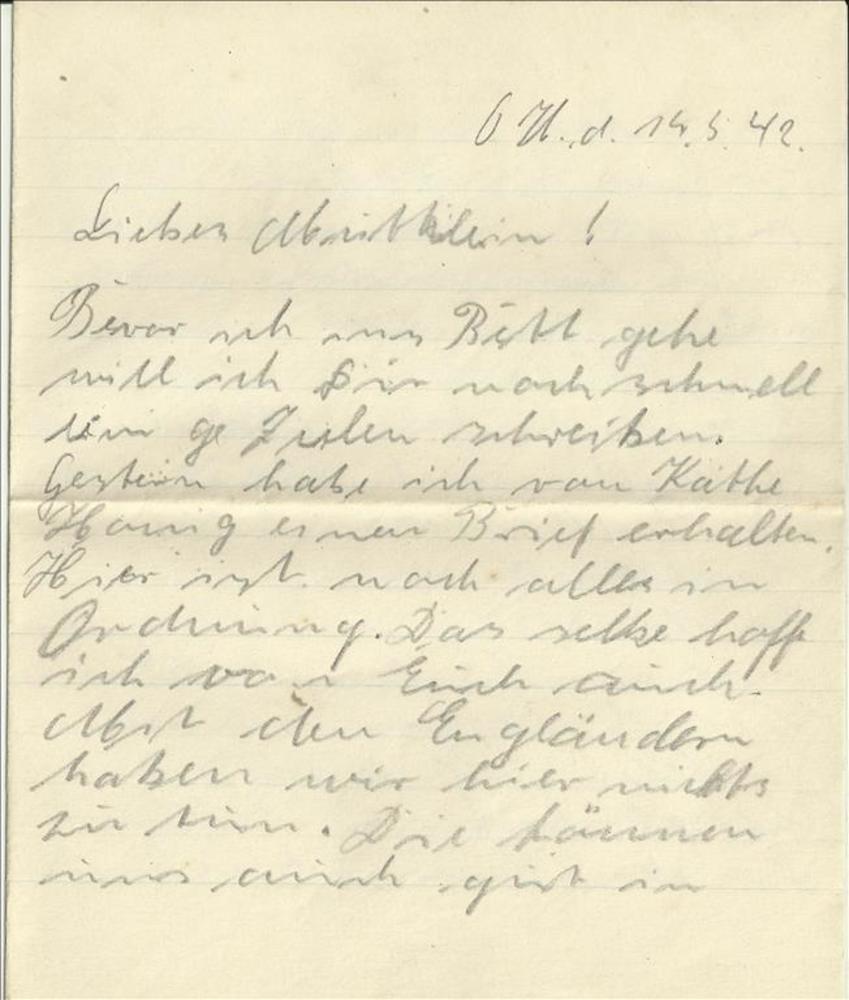 O U. d. 14.5.42.
Liebes Muttilein!
Bevor ich ins Bett gehe
will ich Dir noch schnell
eini ge Zeilen schreiben.
Gestern habe ich von Käthe
Honig einen Brief erhalten.
Hier ist noch alles in
Ordnung. Das selbe hoffe
ich von Euch auch.
Mit den Engländern
haben wir hier nichts
zu tun. Die können
uns auch gut in